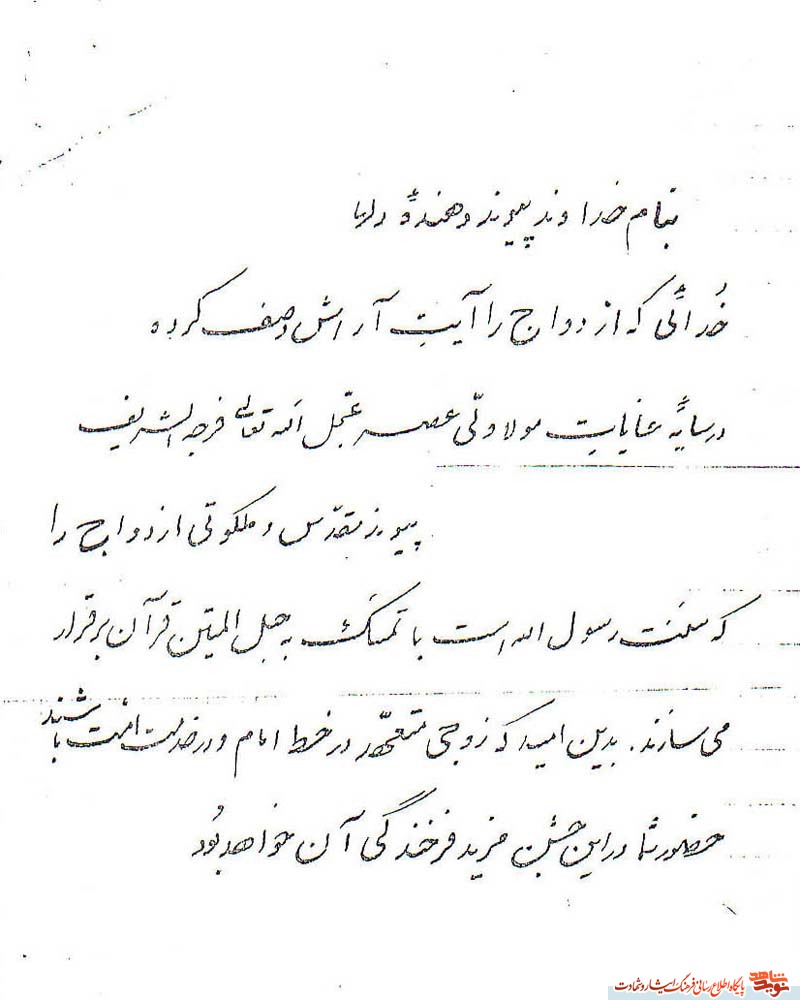 بنام خداوند پیوند دهندهٔ دلها
خُدائی که ازدواج را آیتِ آرامش وصف کرده
در سایهٔ عنایاتِ مولا ولّی عصر عجّل الله تعالی فرجه الشریف
پیوند مقدّس و ملکوتی ازدواج را
که سنّت رسول الله است با تمسّک به حبل المتین قرآن برقرار
می سازند. بدین امید که زوجی متعهّد در خط امام و در خدمت امّت باشند
حضور شما در این جشن مزید فرخندگی آن خواهد بُود
نوید شاهد پایگاه اطلاع رسانی فرهنگ ایثار و شهادت